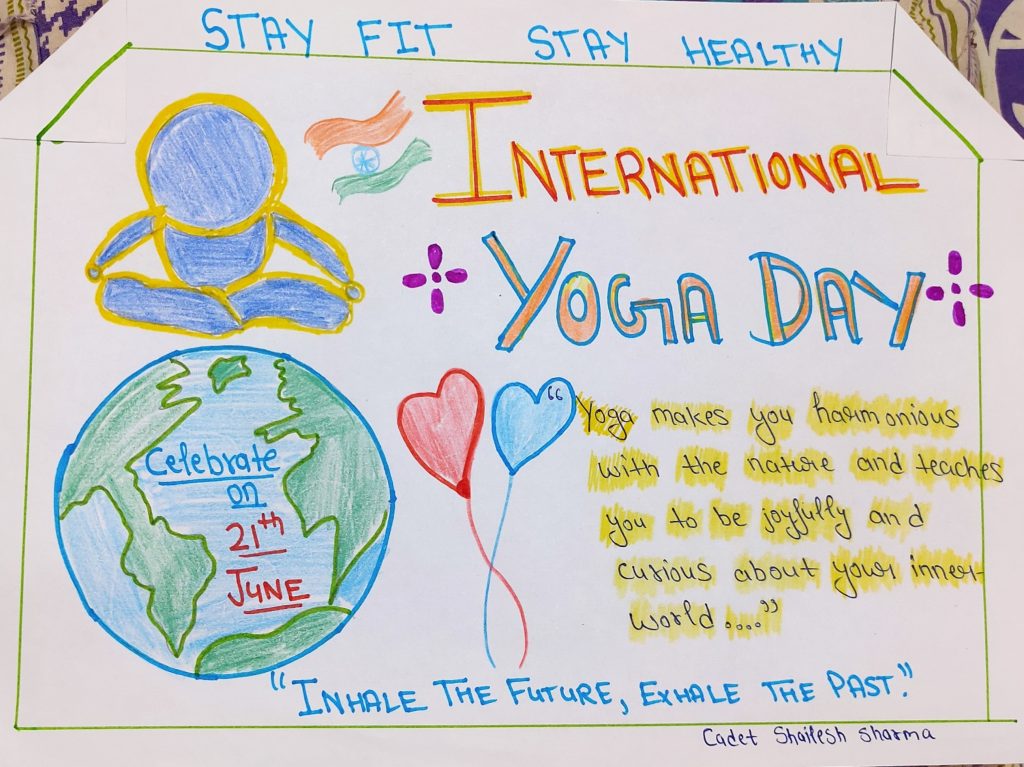 STAY FIT STAY HEALTHY
INTERNATIONAL
YOGA DAY
Celebrate
on
21th
JUNE
"Yoga makes you harmonious
with the nature and teaches
you to be joyfully and
curious about your inner
world...."
"INHALE THE FUTURE, EXHALE THE PAST."
Cadet Shailesh Sharma